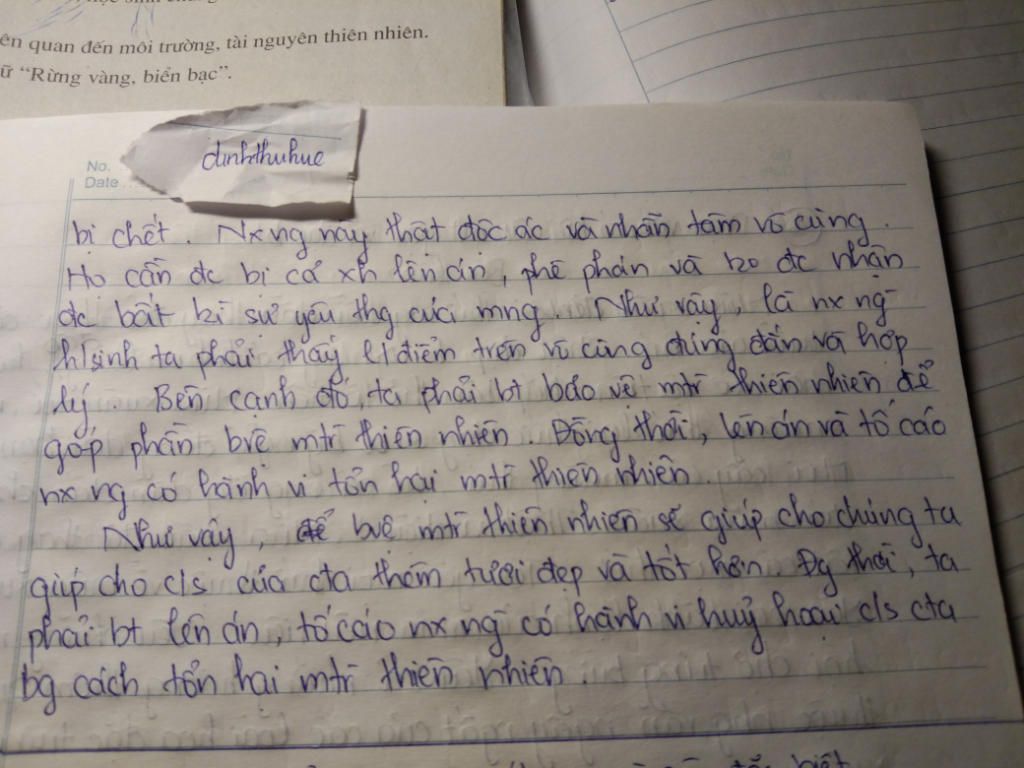 ên quan đến môi trường, tài nguyên thiên nhiên.
ữ “Rừng vàng, biển bạc”.
No.
Date
dinhthuhue
bị chết. Nx ng này thật độc ác và nhẫn tâm vô cùng.
Họ cần đc bị cả xh lên án, phê phán và ko đc nhận
đc bất kì sự yêu thg của mng. Như vậy, là nx ng
h/sinh ta phải thấy l/điểm trên vô cùng đúng đắn và hợp
lý. Bên cạnh đó, ta phải bt bảo vệ mtr thiên nhiên để
góp phần bvệ mtr thiên nhiên. Đồng thời, lên án và tố cáo
nx ng có hành vi tổn hại mtr thiên nhiên.
Như vậy, để bvệ mtr thiên nhiên sẽ giúp cho chúng ta
giúp cho c/s của cta thêm tươi đẹp và tốt hơn. Đg thời, ta
phải bt lên án, tố cáo nx ng có hành vi huỷ hoại c/s cta
bg cách tổn hại mtr thiên nhiên.
biệt